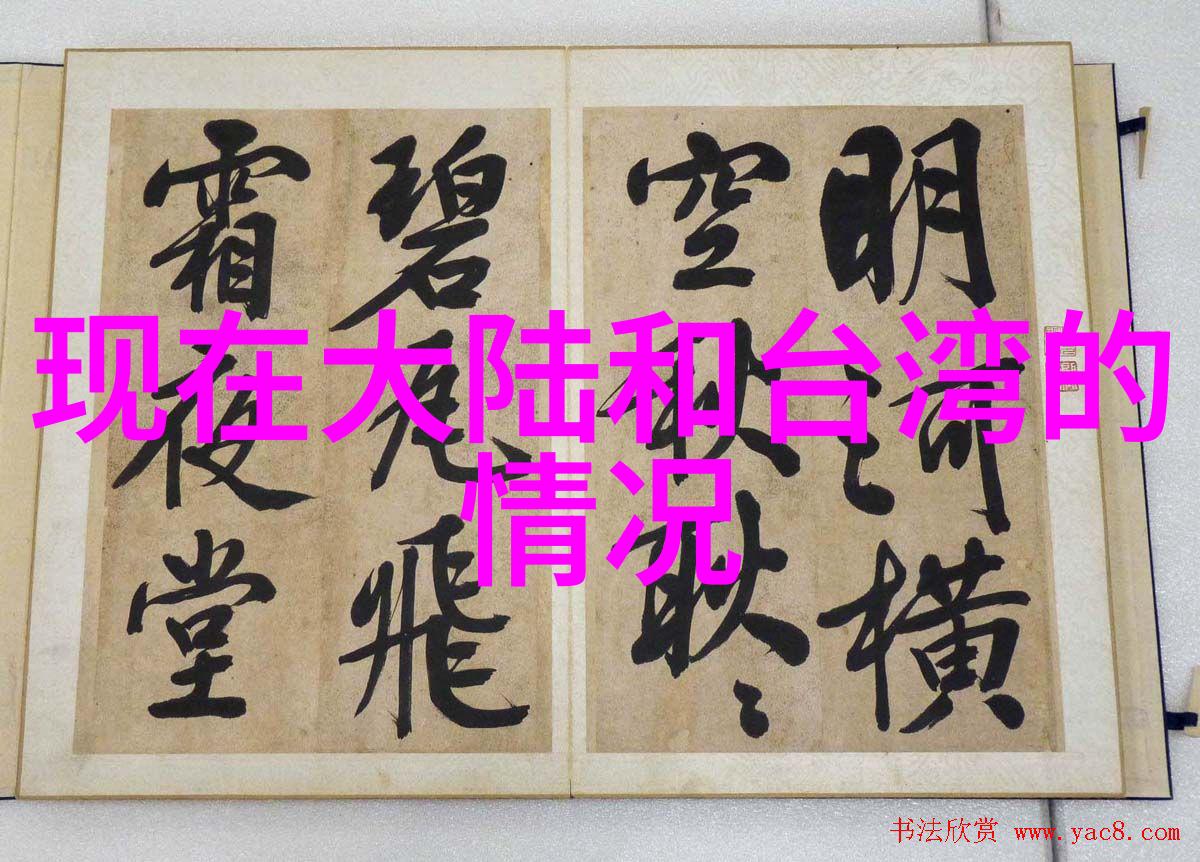 明河橫
空秋耿々
碧瓦飛
霜夜堂
现在大陆和台湾的
情况
书法欣赏 www.yac8.com